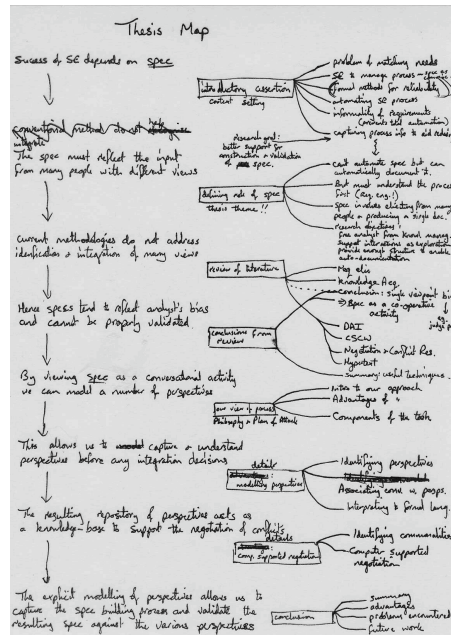 Thesis Map
Success of SE depends on spec
conventional method do not
integrate
The spec must reflect the input
from many people with different views
Current methodologies do not address
identification & integration of many views
Hence specs tend to reflect analyst's bias
and cannot be properly validated.
By viewing spec as a conversational activity
we can model a number of perspectives
This allows us to capture & understand
perspectives before any integration decisions
The resulting repository of perspectives acts as
a knowledge-base to support the negotiation of conflicts
The explicit modelling of perspectives allows us to
capture the spec building process and validate the
resulting spec against the various perspectives
introductory assertion
context setting
problem of matching needs
SE to manage process
formal methods for reliability
automating SE process
informality of requirements
capturing process info to aid
research goal:
better support for
construction & validation
of spec.
defining role of spec
thesis theme!!
can't automate spec but can
automatically document it.
But must understand the process
first
spec involves eliciting from many
people & producing a single doc.
research objectives:
free analyst from
support interactions as exploration
provide enough structure to enable
auto-documentation
review of literature
Knowledge Acq
conclusion: single viewpoint
⇒ Spec as a co-operative
activity
eg.
conclusions from
review
DAI
CSCW
Negotiation & Conflict Res.
Hypertext
summary: useful techniques
our view of process
Philosophy & Plan of Attack
Intro to our approach
Advantages of "
Components of the task
details
modelling perspectives
Identifying perspectives
Associating comm. w.
Interpreting to formal lang.
details
comp. supported negotiation
Identifying commonalities
Computer supported
negotiation
conclusion
summary
advantages
problems encountered
future work